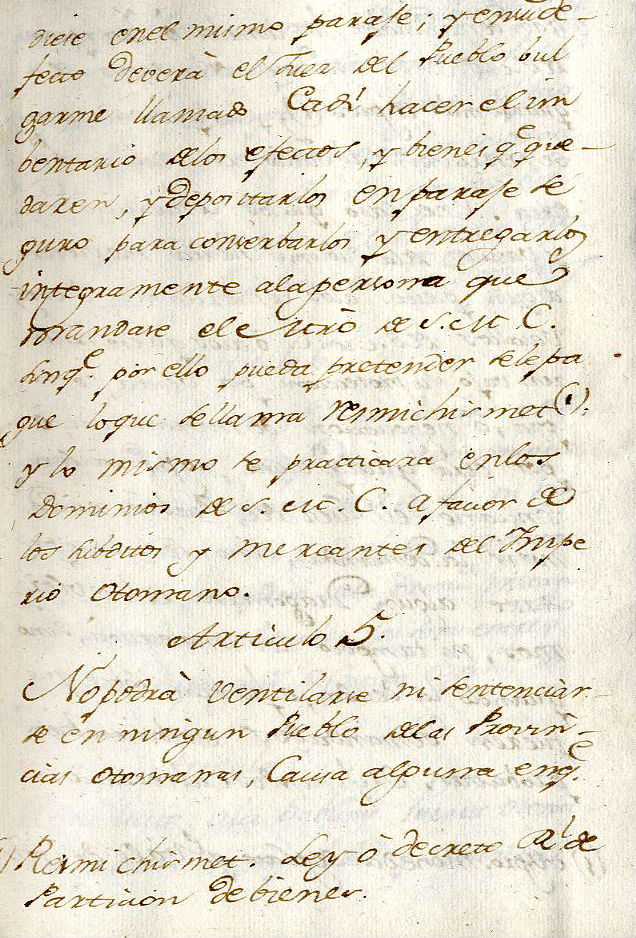 diese en el mismo paraje; y en su de-
fecto deverà el Juez del Pueblo bul
garme llamado Cadí hacer el im
bentario de los efectos, y bienes q.e que-
daren, y depositarlos en paraje se
guro para conserbarlos y entregarlos
integramente a la persona que
mandase el Mtrō de S. M. C.
sin q.e por ello pueda pretender se le pa
gue lo que se llama resmichismet (1).
y lo mismo se practicara en los
Dominios de S. M. C. a favor de
los subditos y mercantes del Impe
rio Otomano.
Articulo 5.
No podrà ventilarse ni sentenciar-
se en ningun Pueblo de las Provin-
cias Otomanas, Causa alguna en q.e
1) Resmichismet. Ley ò decreto R.l de
Particion de bienes.